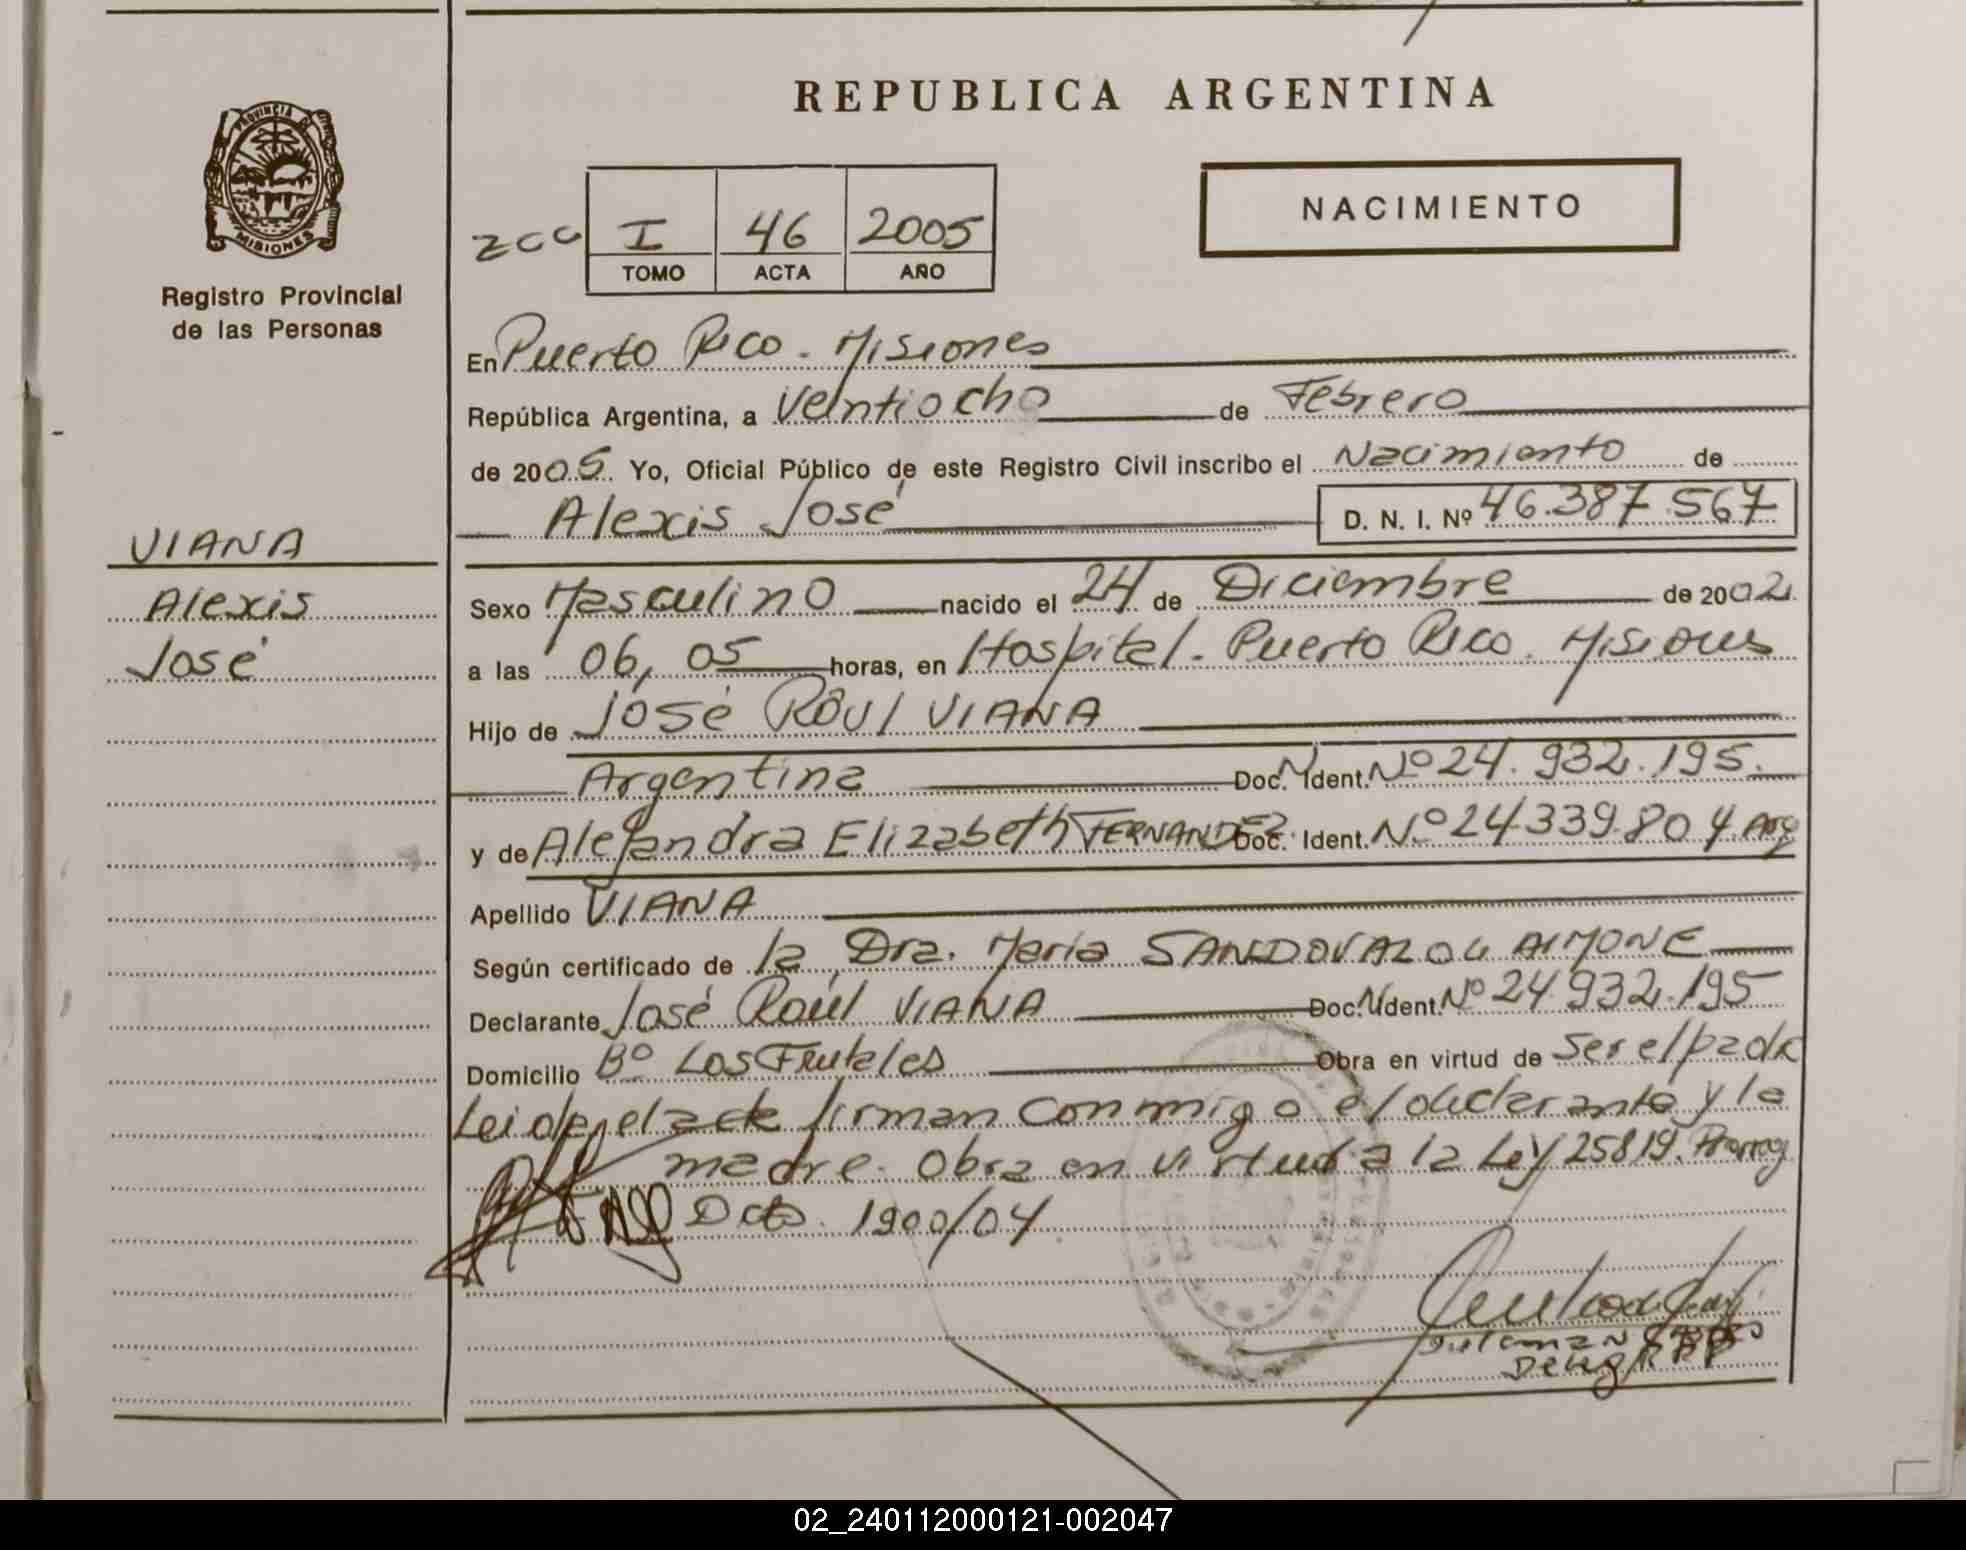 REPUBLICA ARGENTINA
PROVINCIA DE MISIONES
Registro Provincial
de las Personas
I 46 2005
TOMO ACTA AÑO
NACIMIENTO
En Puerto Rico. Misiones
República Argentina, a Veintiocho de Febrero
de 2005. Yo, Oficial Público de este Registro Civil inscribo el Nacimiento de
Alexis José D. N. I. Nº 46.387.567
VIANA
Alexis
José
Sexo Masculino nacido el 24 de Diciembre de 2002
a las 06,05 horas, en Hospital. Puerto Rico. Misiones
Hijo de José Raúl VIANA
Argentina Doc. N. Ident. Nº 24.932.195.
y de Alejandra Elizabeth FERNANDEZ Doc. Ident. Nº 24339.804 Arg
Apellido VIANA
Según certificado de la Dra. Maria SANDOVAL AIMONE
Declarante José Raúl VIANA Doc. N. Ident. Nº 24.932.195
Domicilio Bº Los Frutales Obra en virtud de Ser el padre
Leida el acta firman conmigo el declarante y la
madre. Obra en virtud a la Ley 25819. Prorrog
Dcto. 1900/04
02_240112000121-002047